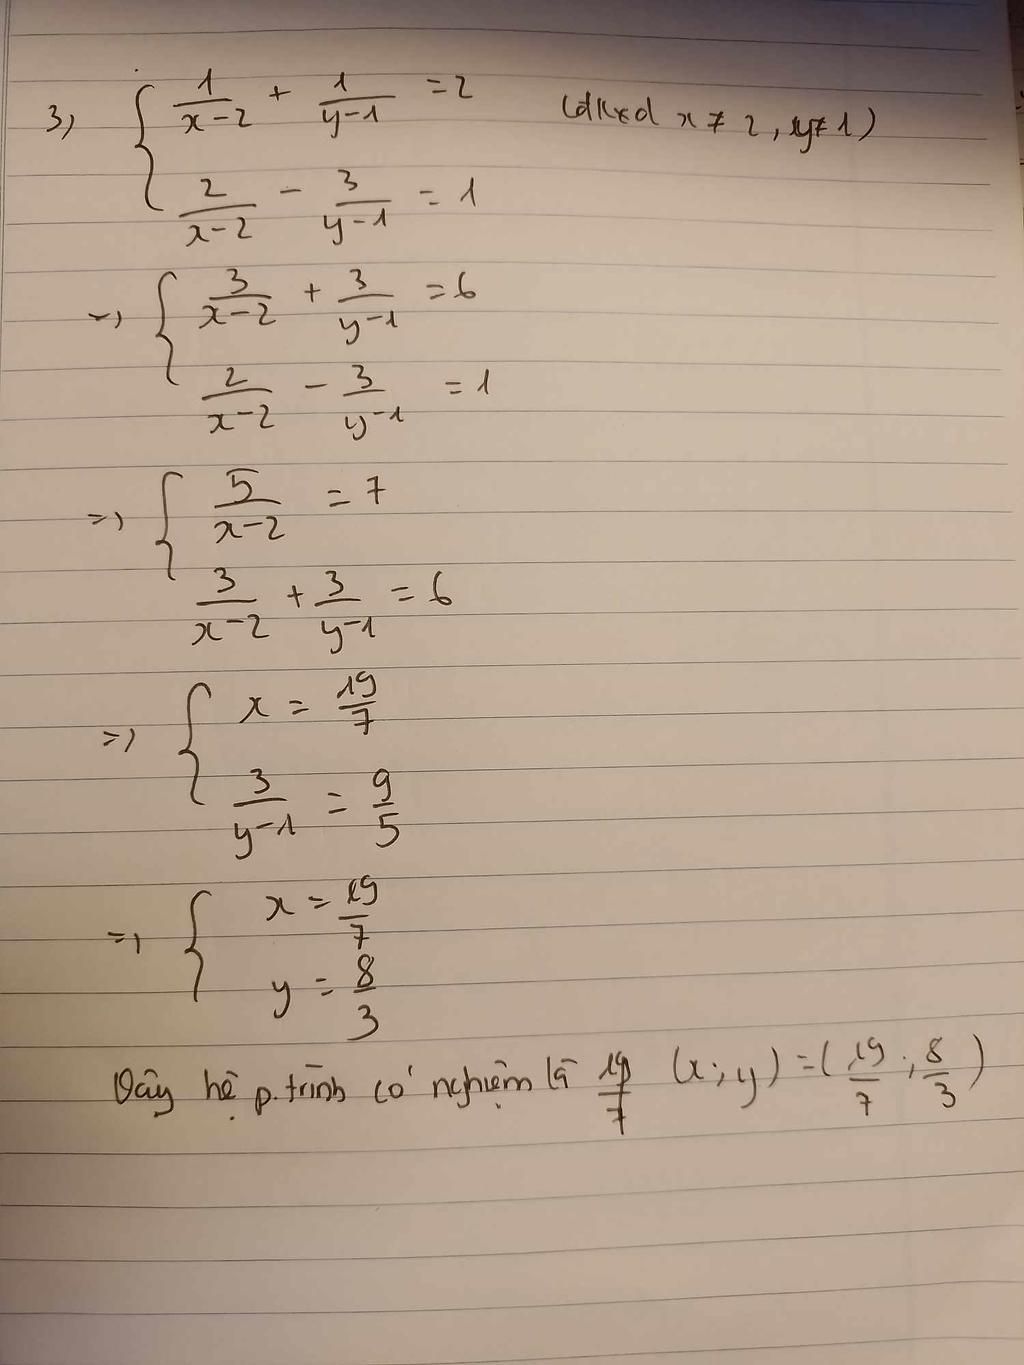 3) { 1/(x-2) + 1/(y-1) = 2 (đkxđ x ≠ 2, y ≠ 1)
2/(x-2) - 3/(y-1) = 1
=> { 3/(x-2) + 3/(y-1) = 6
2/(x-2) - 3/(y-1) = 1
=> { 5/(x-2) = 7
3/(x-2) + 3/(y-1) = 6
=> { x = 19/7
3/(y-1) = 9/5
=> { x = 19/7
y = 8/3
Vậy hệ p.trình có nghiệm là 19/7 (x;y) = (19/7; 8/3)